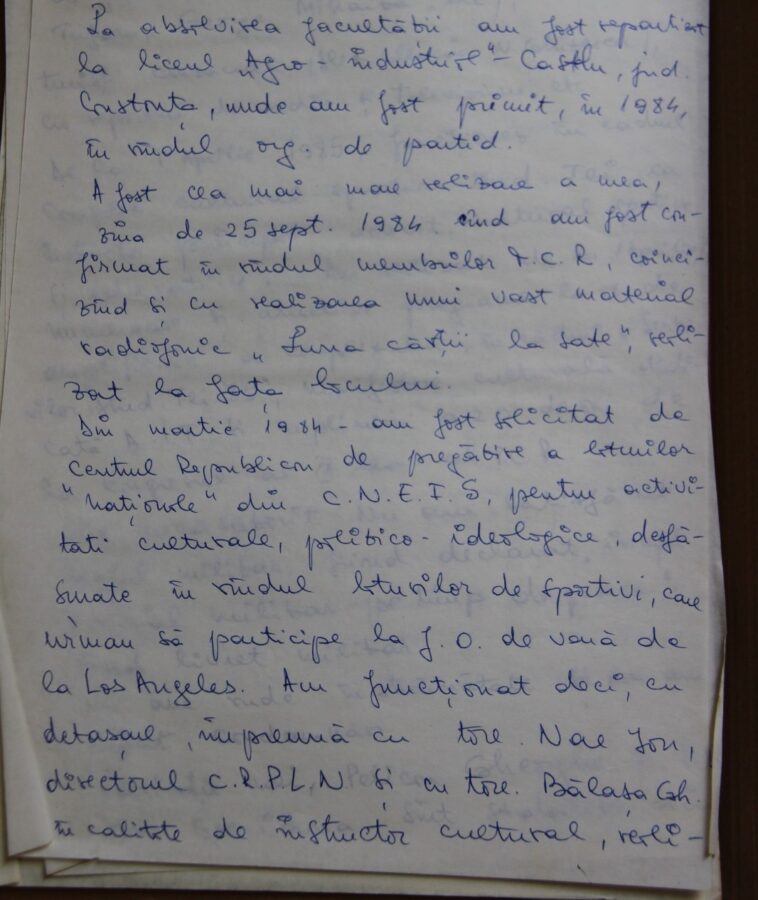 La absolvirea facultății am fost repartizat
la liceul „Agro-industrial" - Castelu, jud.
Constanța, unde am fost primit, în 1984,
în rîndul org. de partid.
A fost cea mai mare realizare a mea,
ziua de 25 sept. 1984 cînd am fost con-
firmat în rîndul membrilor P.C.R, coinci-
zînd și cu realizarea unui vast material
radiofonic „Luna cărții la sate", reali-
zat la fața locului.
Din martie 1984 - am fost solicitat de
Centrul Republican de pregătire a loturilor
"naționale" din C.N.E.F.S, pentru activi-
tati culturale, politico-ideologice, desfă-
șurate în rîndul loturilor de sportivi, care
urmau să participe la J.O. de vară de
la Los Angeles. Am funcționat deci, cu
detașare, împreună cu tov. Nae Ion,
directorul C.R.P.L.N și cu tov. Bălașa Gh.
în calitate de instructor cultural, reali-